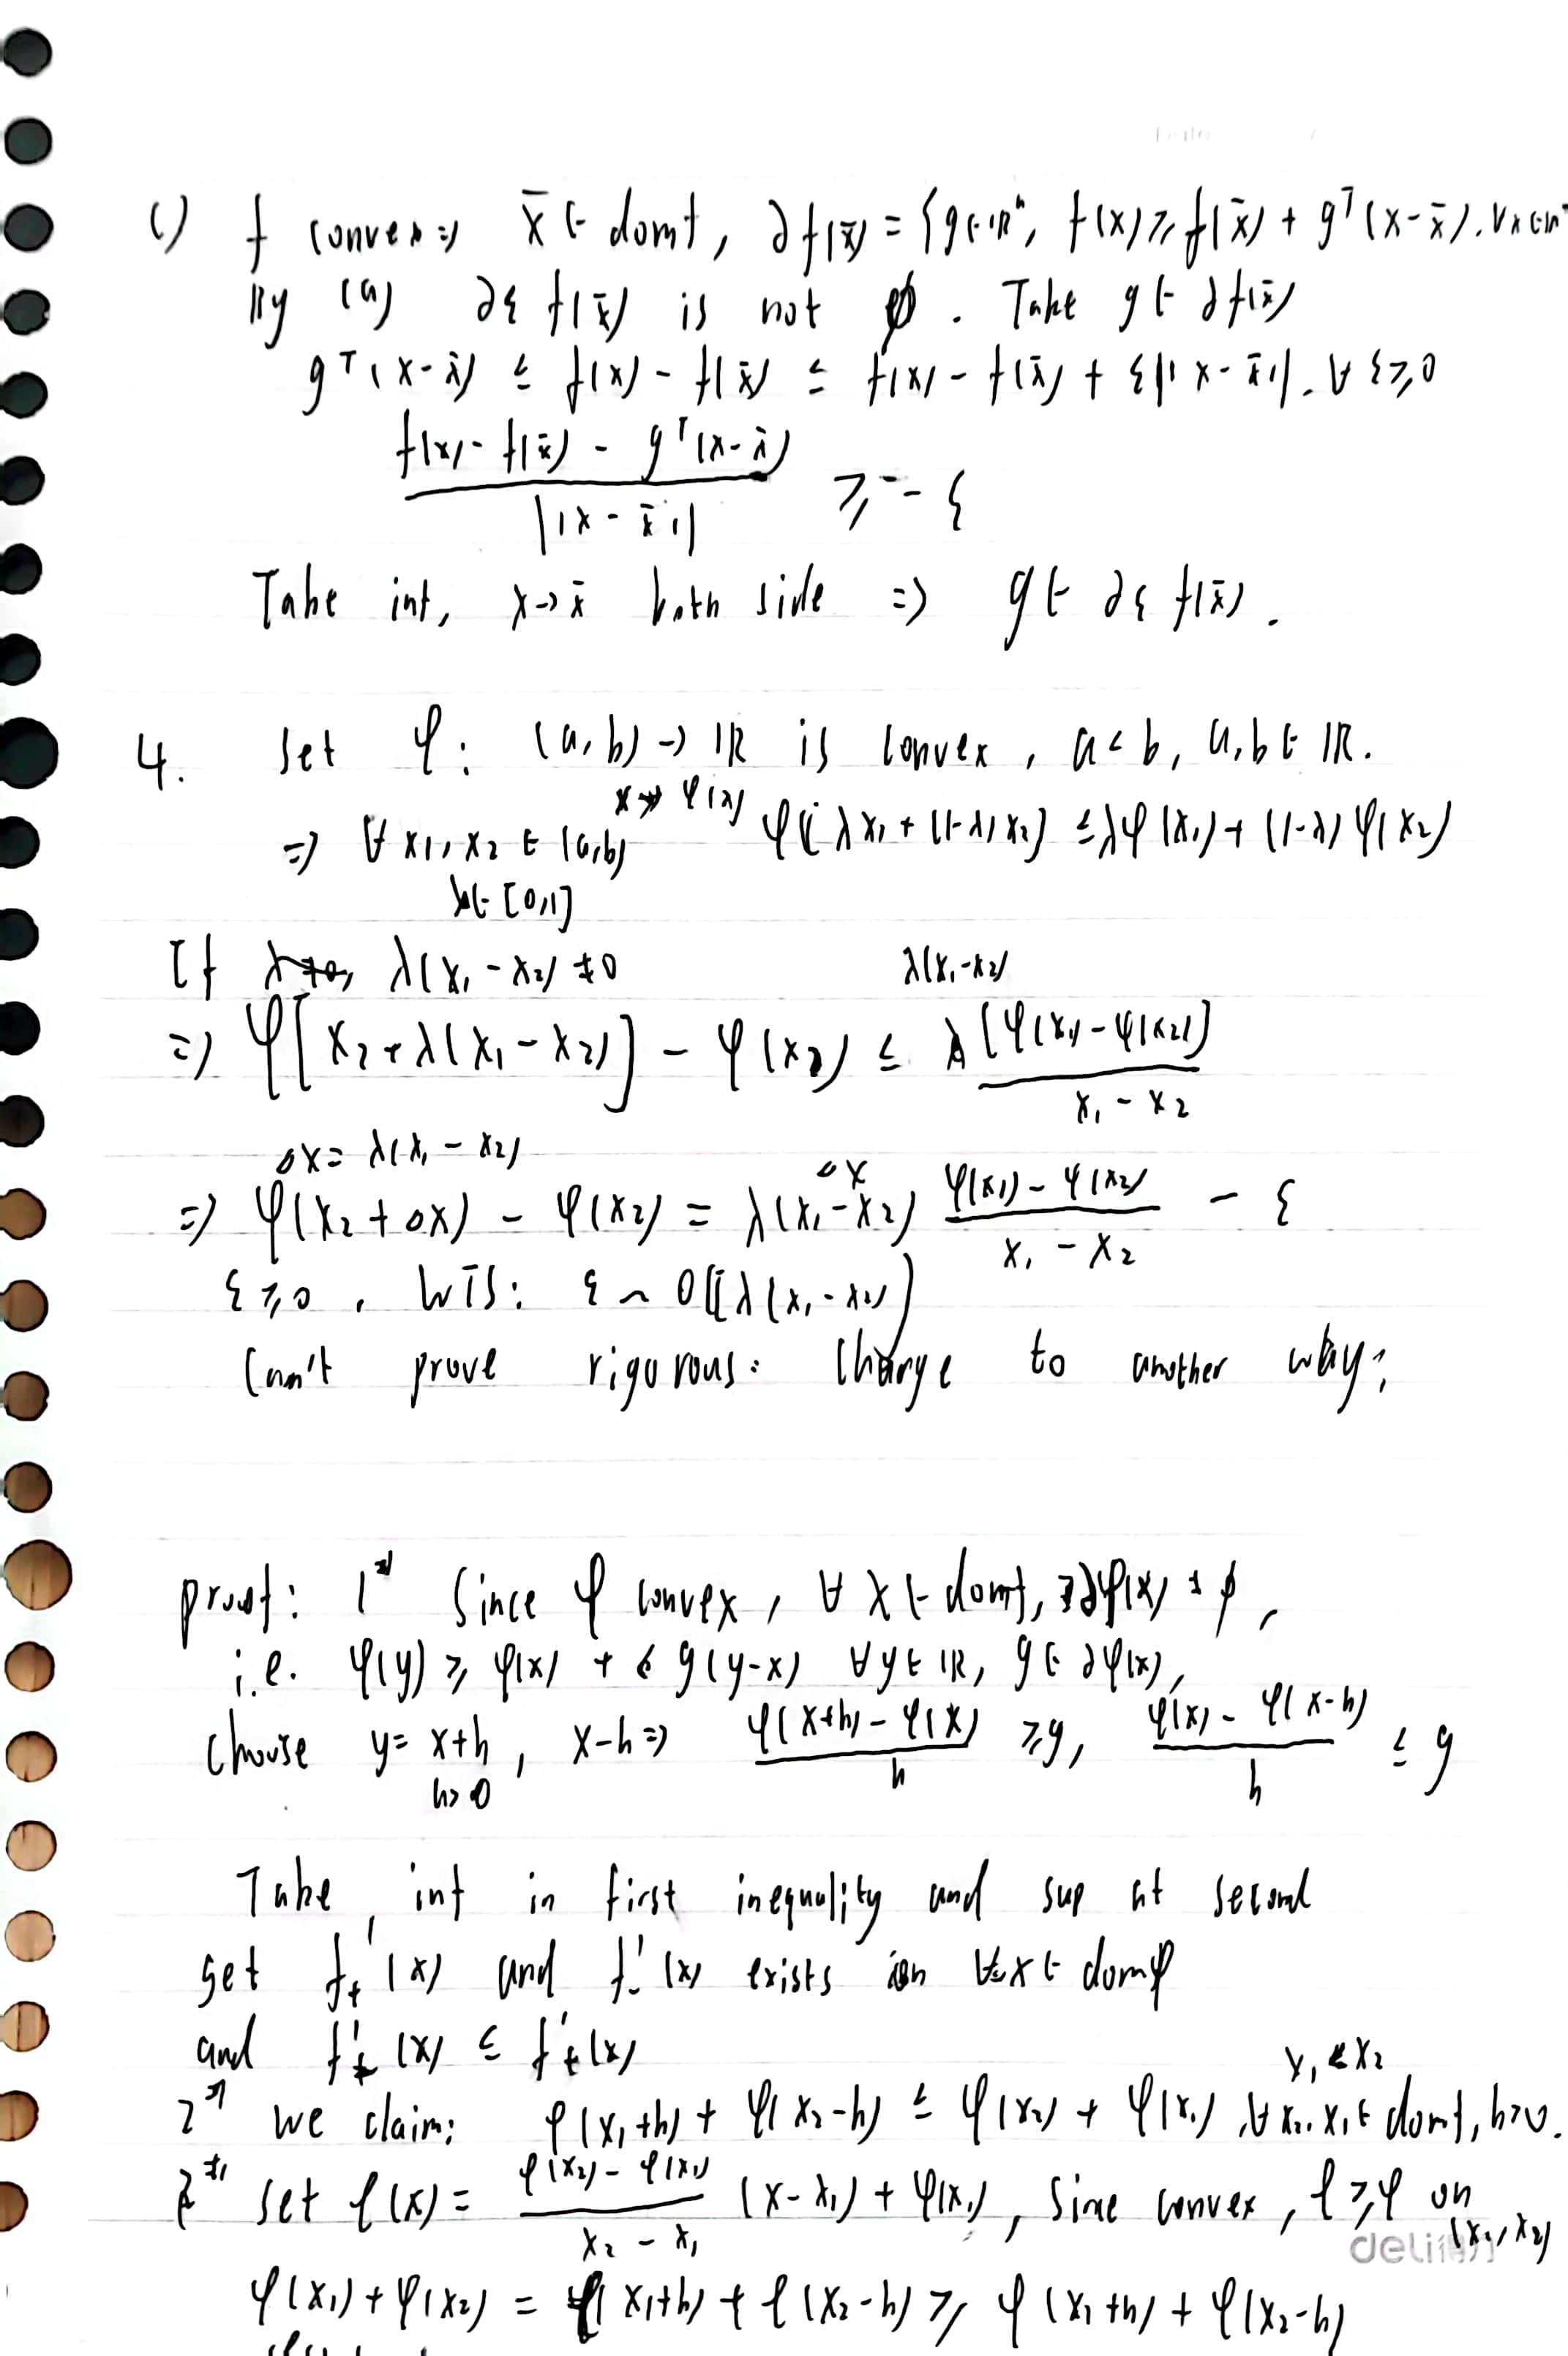 Date /
c) f convex => x̄ ∈ domf, ∂f(x̄) = {g∈ℝⁿ, f(x) ≥ f(x̄) + gᵀ(x-x̄), ∀x∈ℝⁿ
By (a) ∂ε f(x̄) is not ∅. Take g ∈ ∂f(x̄)
gᵀ(x-x̄) ≤ f(x) - f(x̄) ≤ f(x) - f(x̄) + ε||x-x̄||, ∀ ε≥0
(f(x) - f(x̄) - gᵀ(x-x̄)) / ||x-x̄|| ≥ -ε
Take inf, x→x̄ both side => g ∈ ∂ε f(x̄).
4. Set φ: (a,b) → ℝ is convex, a<b, a,b ∈ ℝ.
x → φ(x)
=> ∀ x₁, x₂ ∈ (a,b) φ(λx₁ + (1-λ)x₂) ≤ λφ(x₁) + (1-λ)φ(x₂)
λ∈[0,1]
If λ(x₁-x₂) ≠ 0
λ(x₁-x₂)
=> φ[x₂+λ(x₁-x₂)] - φ(x₂) ≤ λ [φ(x₁)-φ(x₂)] / x₁-x₂
△x = λ(x₁-x₂)
△x
=> φ(x₂+△x) - φ(x₂) = λ(x₁-x₂) (φ(x₁)-φ(x₂)) / (x₁-x₂) - ε
ε≥0, WTS: ε ~ O(λ(x₁-x₂))
Can't prove rigorous: Change to another way:
proof: 1° Since φ convex, ∀ x ∈ domf, ∂φ(x) ≠ ∅,
i.e. φ(y) ≥ φ(x) + g(y-x) ∀y∈ℝ, g∈∂φ(x),
choose y = x+h, x-h => (φ(x+h)-φ(x)) / h ≥ g, (φ(x)-φ(x-h)) / h ≤ g
h>0
Take inf in first inequality and sup at second
get f₊'(x) and f₋'(x) exists on ∀x∈domφ
and f'₋(x) ≤ f'₊(x)
x₁ < x₂
2° we claim: φ(x₁+h) + φ(x₂-h) ≤ φ(x₂) + φ(x₁), ∀ x₂, x₁ ∈ domf, h>0.
set ℓ(x) = (φ(x₂)-φ(x₁)) / (x₂-x₁) (x-x₁) + φ(x₁), Sine convex, ℓ≥φ on
(x₁,x₂)
deli得力
φ(x₁)+φ(x₂) = ℓ(x₁+h) + ℓ(x₂-h) ≥ φ(x₁+h) + φ(x₂-h)